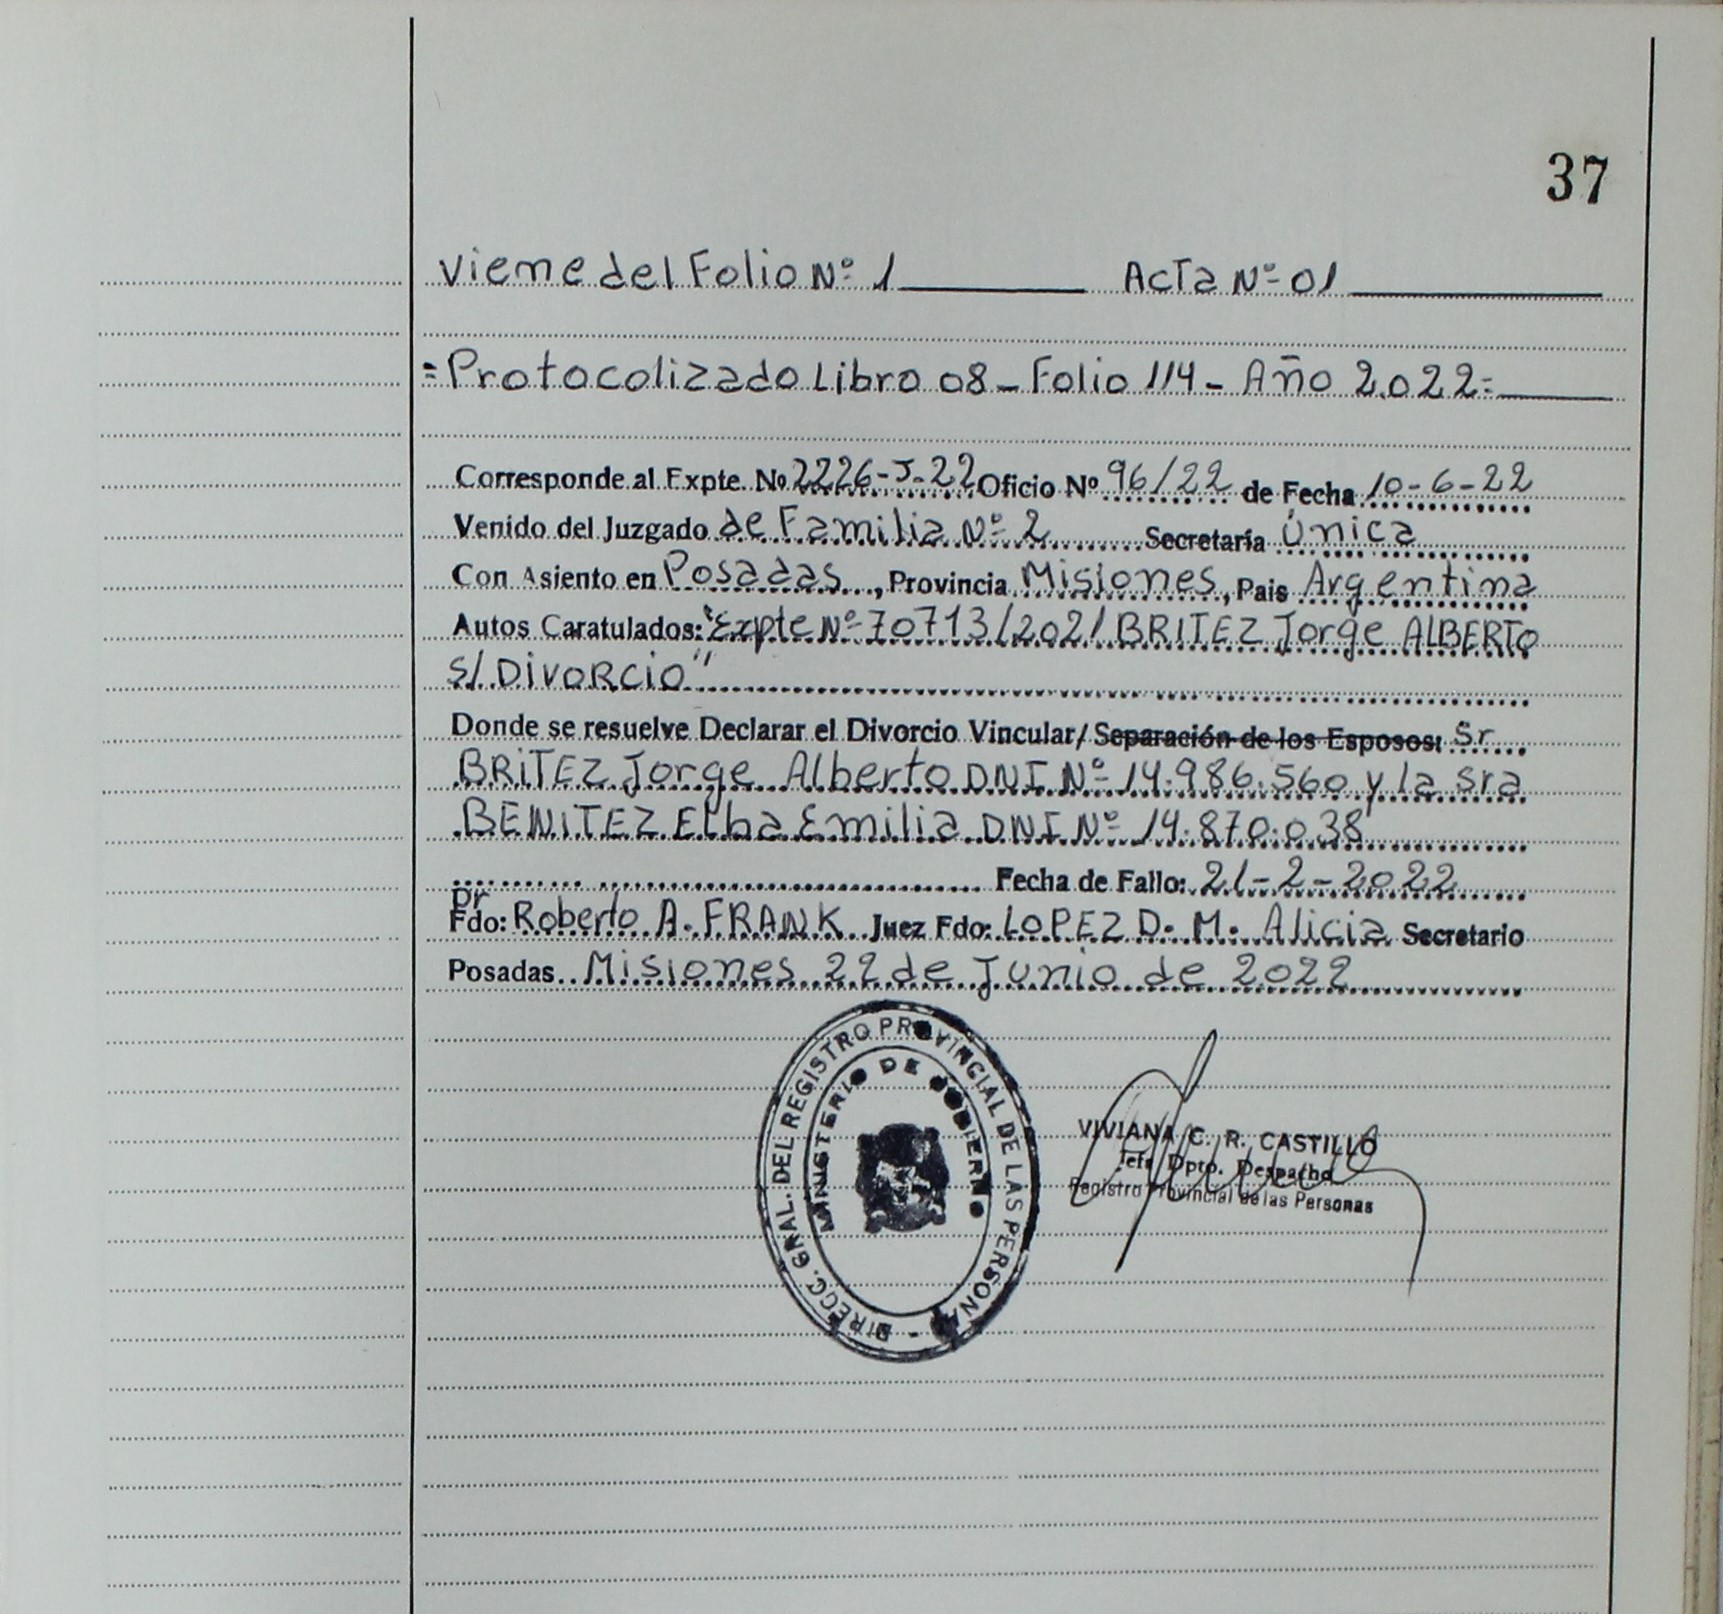 37
Viene del Folio Nº 1 Acta Nº 01
=Protocolizado Libro 08 - Folio 114 - Año 2.022=
Corresponde al Expte. Nº 2226-J-22 Oficio Nº 96/22 de Fecha 10-6-22
Venido del Juzgado de Familia Nº 2 Secretaría Única
Con Asiento en Posadas, Provincia Misiones, Pais Argentina
Autos Caratulados: "Expte Nº 70713/2021 BRITEZ Jorge ALBERTO
S/ DIVORCIO"
Donde se resuelve Declarar el Divorcio Vincular/ Separación de los Esposos: Sr
BRITEZ Jorge Alberto DNI Nº 14.986.560 y la sra
BENITEZ Elba Emilia DNI Nº 14.870.038
Fecha de Fallo: 21-2-2022
Dr
Fdo: Roberto A. FRANK Juez Fdo: LOPEZ D. M. Alicia Secretario
Posadas.. Misiones 22 de Junio de 2022
DIRECC. GRAL. DEL REGISTRO PROVINCIAL DE LAS PERSONAS -
MINISTERIO DE GOBIERNO
VIVIANA C. R. CASTILLO
Jefa Dpto. Despacho
Registro Provincial de las Personas